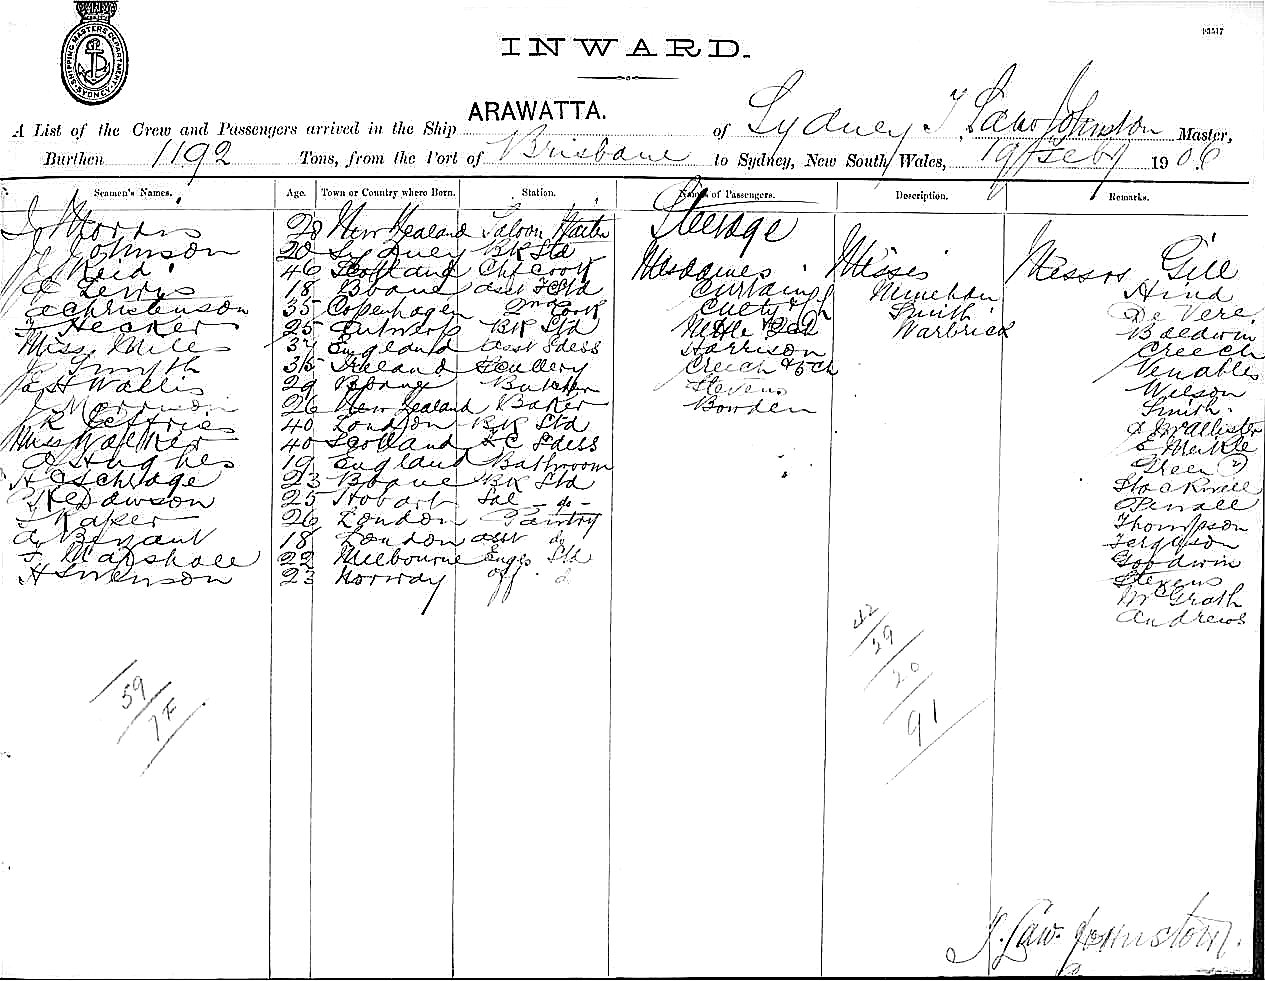 SHIPPING MASTERS DEPARTMENT SYDNEY
INWARD.
ARAWATTA.
A List of the Crew and Passengers arrived in the Ship of Sydney, T Law Johnston Master,
Burthen 1192 Tons, from the Port of Brisbane to Sydney, New South Wales, 19 Feby 1906
Seamen's Names. Age. Town or Country where Born. Station. Names of Passengers. Description. Remarks.
J Morris 28 New Zealand Saloon Waiter Steerage
J Johnson 20 Sydney BK Std Mesdames Misses Messrs Gill
J Reid 46 Scotland Chf cook Curtain Minehan Hind
Lewis 18 Bbane asst F Std Smith De Vere
A Christenson 35 Copenhagen 2nd Cook Warbrick Baldwin
Hecker 25 Antwerp BK Std Harrison Creech
Miss Mills England Asst Sdess Creech & Ech Venables
Smyth 35 Ireland Scullery Stevens Wilson
H Wallis 29 Bbane Butcher Bowden Smith
26 New Zealand Baker McAllister
R Jeffries 40 London BK Std E Merkle
Mrs Walker 40 Scotland Sdess Green
A Hughes 19 England Bathroom Stockwell
H Aschrage 23 Bbane BK Std
Dawson 25 Hobart Sal - do - Thompson
Raper 26 London Pantry Ferguson
A Bryant 18 London asst d Goodwin
F Marshall 22 Melbourne Engrs Std Stevens
H Swenson 23 Norway Off d McGrath
Andrews
59
7F
42
29
20
91
T. Law Johnston.